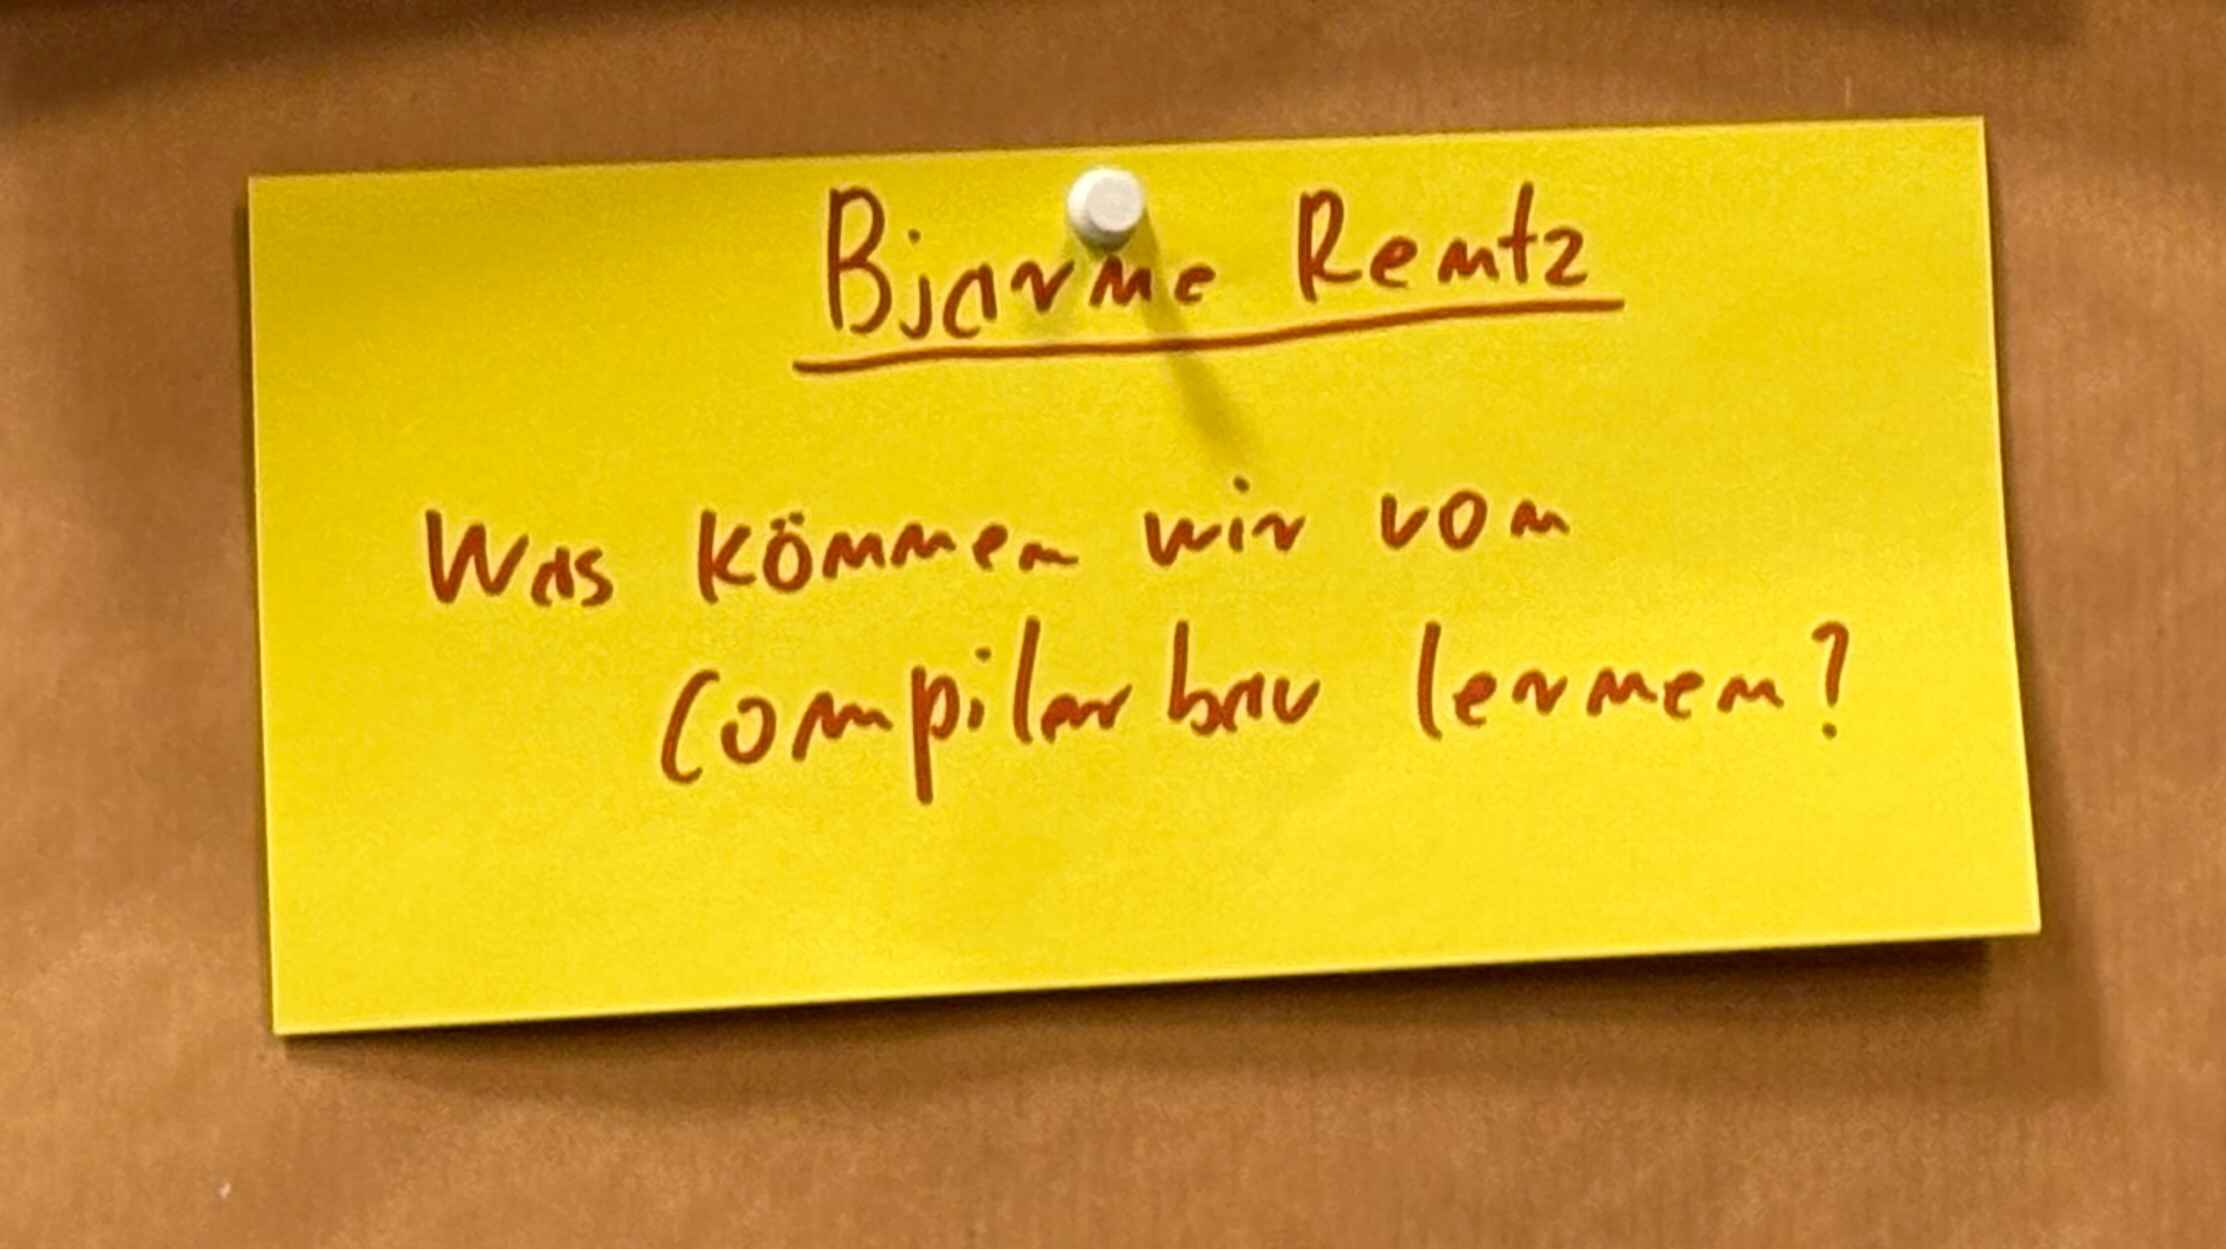 Bjarne Rentz
Was können wir vom
Compilerbau lernen?